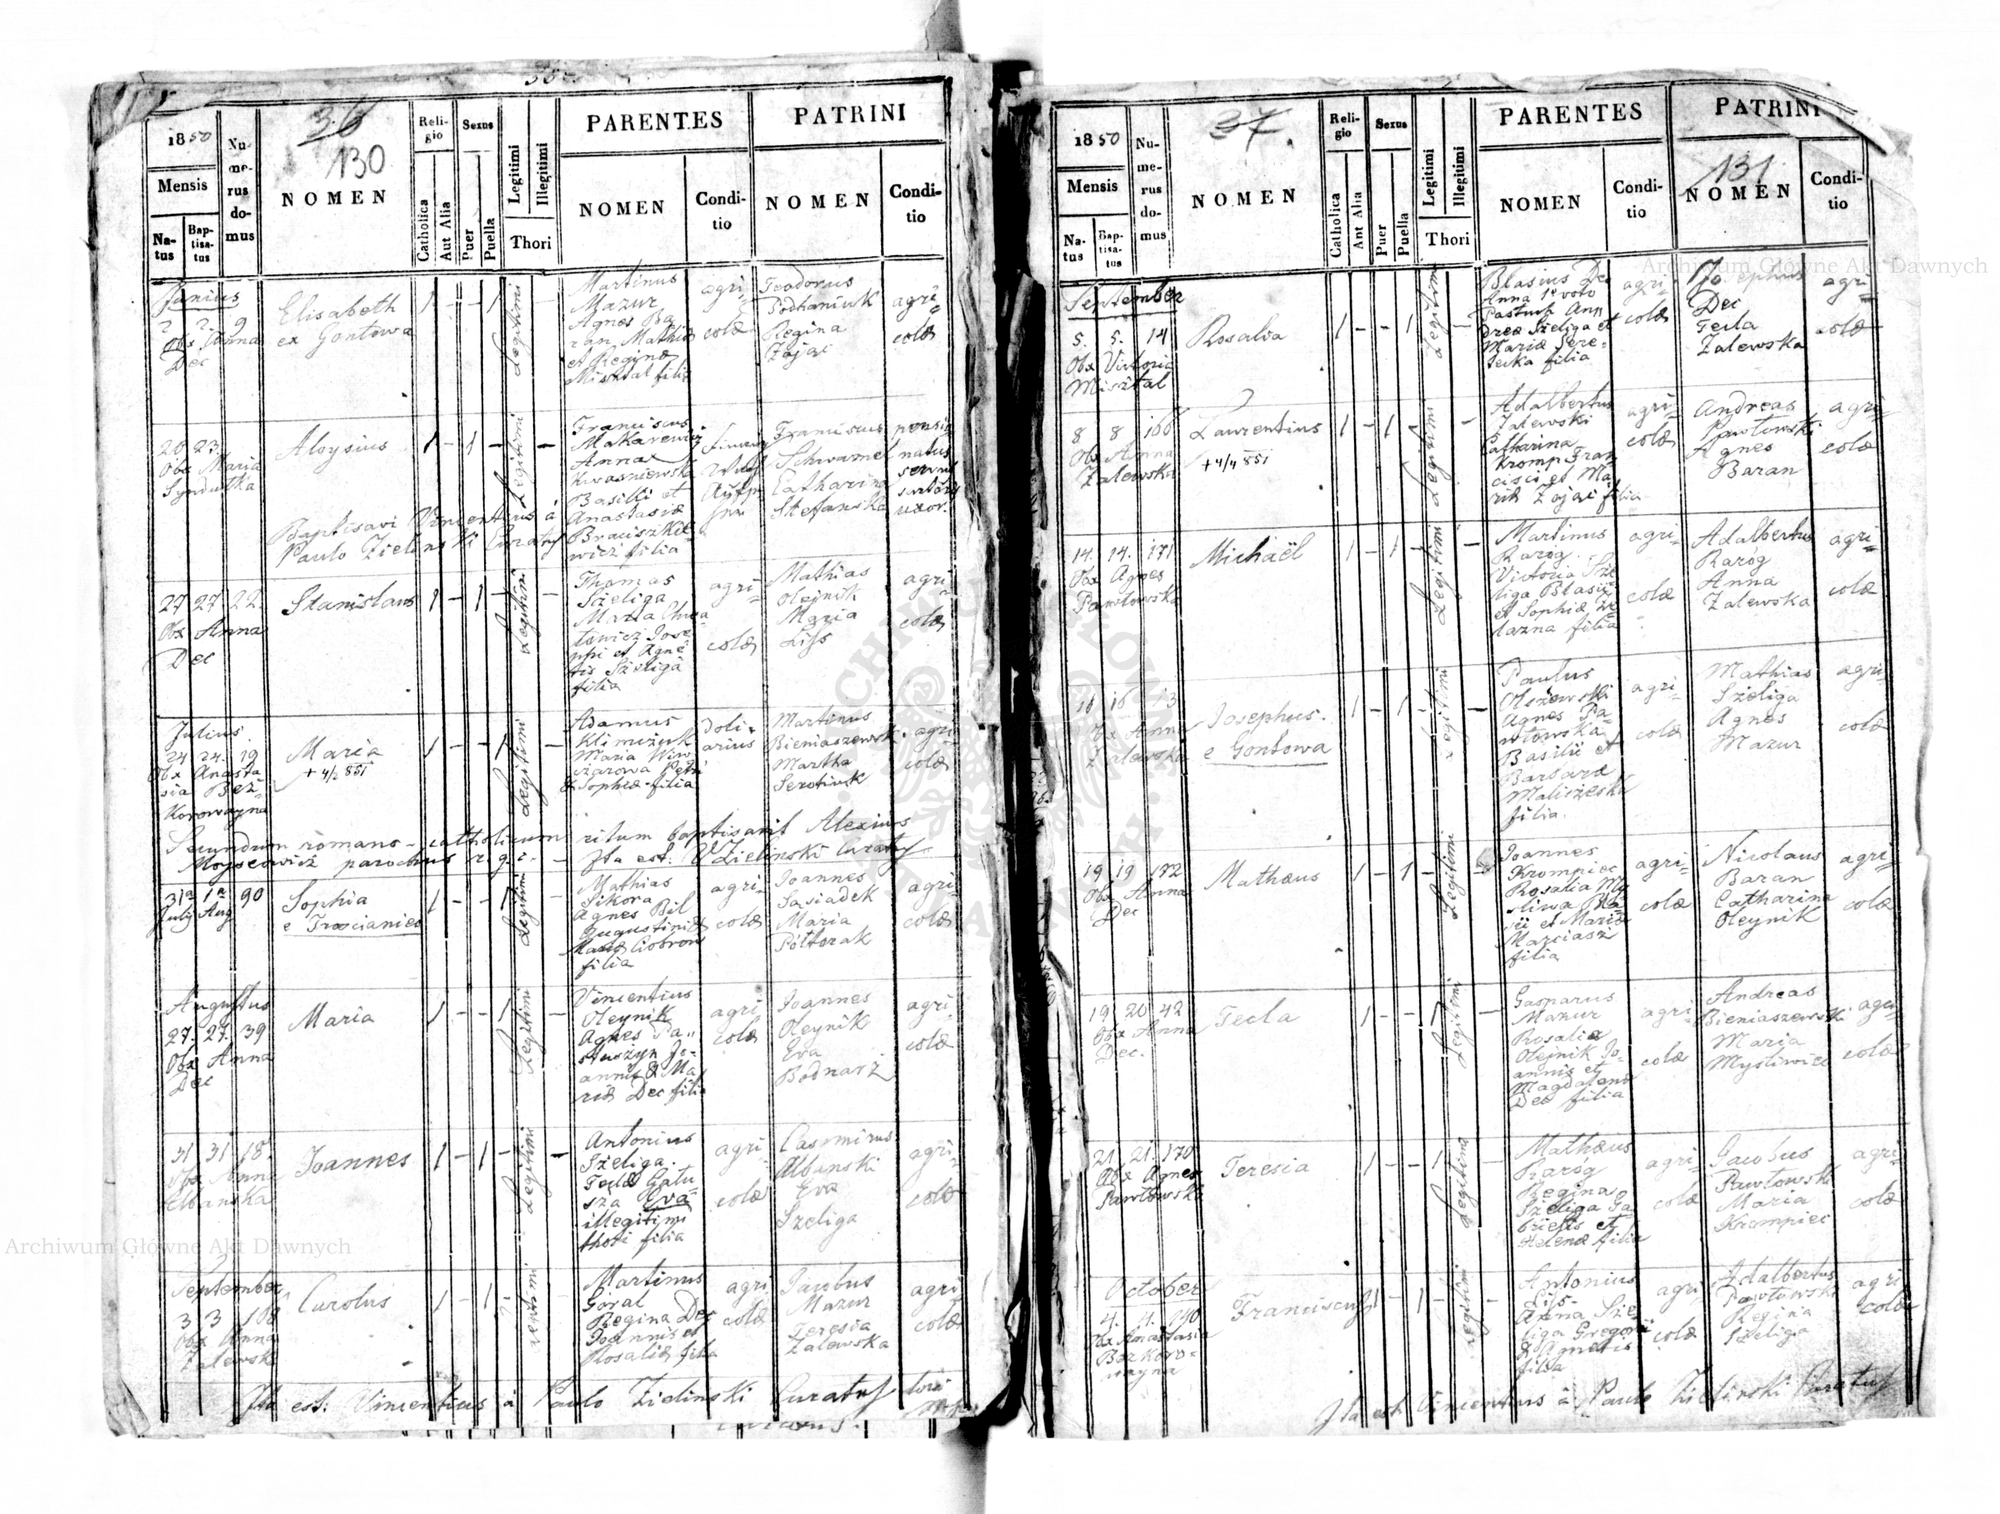 36
130
1850
Mensis
Natus
Baptisatus
Numerus domus
NOMEN
Religio
Catholica
Aut Alia
Sexus
Puer
Puella
Legitimi
Illegitimi
Thori
PARENTES
NOMEN
Conditio
PATRINI
NOMEN
Conditio
Junius
2 2 9
Obx Anna
Dec
Elisabeth
ex Gontowa
1 - - 1 Legitimi -
Martinus
Mazur
Agnes Ba
ran Mathiæ
et Reginæ
Misztal filia
agri=
colæ
Teodorus
Podhaniuk
Regina
Zając
agri=
colæ
20 23
Obx Maria
Aloysius
1 - 1 - Legitimi -
Franciscus
Makarewicz
Anna
Kwasniewska
Basilii et
Anastasiæ
Braciszkie
wicz filia
Franciscus
Schwamel
Catharina
Stefanska
pensio
natus
servus
uxor
Baptisavi Vincentius à
Paulo Zielinski Curatus
27 27 22
Obx Anna
Dec
Stanislaus
1 - 1 - Legitimi -
Thomas
Szeliga
Maria Chwa
towicz Jose
phi et Agne
tis Szeliga
filia
agri=
colæ
Mathias
Olejnik
Maria
Liss
agri=
colæ
Julius
24 24 19
Obx Anasta
sia Bez=
Korowayna
Maria
+ 4/2 851
1 - - 1 Legitimi -
Adamus
Klimiuk
Maria Win
czarowa Petri
& Sophiæ filia
doli=
arius
Martinus
Bieniaszewski
Martha
Serotiuk
agri
colæ
Secundum romano-catholicum ritum baptisavit Alexius
Moyseowicz parochus r. g. c. - Ita est: V Zielinski Curatus
31a 1a 90
July Aug
Sophia
e Troscianiec
1 - - 1 Legitimi -
Mathias
Sikora
Agnes Bil
Augustini &
Mariæ Ciobron
filia
agri=
colæ
Joannes
Sasiadek
Maria
Półtorak
agri
colæ
Augustus
27. 27. 39
Obx Anna
Dec
Maria
1 - - 1 Legitimi -
Vincentius
Oleynik
Agnes Pa=
stuszyn Jo-
annis & Ma
riæ Dec filia
agri
colæ
Joannes
Oleynik
Eva
Bodnarz
agri
colæ
31 31 18
Obx Anna
Albanska
Joannes
1 - 1 - Legitimi -
Antonius
Szeliga.
Teclæ Gatu
sza Eva
illegitimi
thori filia
agri=
colæ
Casimirus
Albanski
Eva
Szeliga
agri=
colæ
September
3 3 108
Obx Anna
Zalewska
Carolus
1 - 1 - Legitimi
Martinus
Goral
Regina Dec
Joannis et
Rosaliæ filia
agri
colæ
Jacobus
Mazur
Teresia
Zalewska
agri
colæ
Ita est: Vincentius à Paulo Zielinski Curatus loci
mp
37.
131
1850
Mensis
Natus
Baptisatus
Numerus domus
NOMEN
Religio
Catholica
Ant Alia
Sexus
Puer
Puella
Legitimi
Illegitimi
Thori
PARENTES
NOMEN
Conditio
PATRINI
NOMEN
Conditio
September
5. 5. 14
Obx Victoria
Misztal
Rosalia
1 - - 1 Legitimi -
Blasius Dec
Anna 1o voto
Pastuch An
dreæ Szeliga et
Mariæ Sere-
decka filia
agri=
colæ
Josephus
Dec
Tecla
Zalewska
agri=
colæ
8 8 166
Obx Anna
Zalewska
Laurentius
+ 4/4 851
1 - 1 - Legitimi -
Adalbertus
Zalewski
Catharina
Kromp Fran
cisci et Ma
riæ Zając filia
agri=
colæ
Andreas
Pawłowski
Agnes
Baran
agri=
colæ
14. 14. 171
Obx Agnes
Pawłowska
Michaël
1 - 1 - Legitimi -
Martinus
Raróg
Victoria Sze
liga Blasii
et Sophiæ Że
lazna filia
agri=
colæ
Adalbertus
Raróg
Anna
Zalewska
agri=
colæ
16 16 13
Obx Anna
Zalewska
Josephus.
e Gontowa
1 - 1 - Legitimi
Paulus
Olszewski
Agnes Pa
włowska
Basilii et
Barbaræ
Maliczeska
filia.
agri=
colæ
Mathias
Szeliga
Agnes
Mazur
agri=
colæ
19 19 192
Obx Anna
Dec
Mathæus
1 - 1 - Legitimi
Joannes
Krompiec
Rosalia My
sliwa Ba
sii et Mariæ
Marciasz
filia
agri=
colæ
Nicolaus
Baran
Catharina
Oleynik
agri=
colæ
19 20 42
Obx Anna
Dec.
Tecla
1 - - 1 Legitimi -
Gasparus
Mazur
Rosalia
Olejnik Jo-
annis et
Magdalenæ
Dec filia
agri=
colæ
Andreas
Bieniaszewski
Maria
Mysliwiec
agri=
colæ
21. 21. 170
Obx Agnes
Pawłowska
Teresia
1 - - 1 Legitimi -
Mathæus
Raróg
Regina
Szeliga Ga
brielis et
Helenæ filia
agri=
colæ
Jacobus
Pawłowski
Maria
Krompiec
agri=
colæ
October
4. 4. 190
Obx Anastasia
Bezkoro-
wayna
Franciscus
1 - 1 - Legitimi -
Antonius
Lis-
Anna Sze
liga Gregorii
& Agnetis
filia
agri=
colæ
Adalbertus
Pawłowski
Regina
Szeliga
agri
colæ
Ita est Vincentius à Paulo Zielinski Curatus
Archiwum Główne Akt Dawnych
Archiwum Główne Akt Dawnych